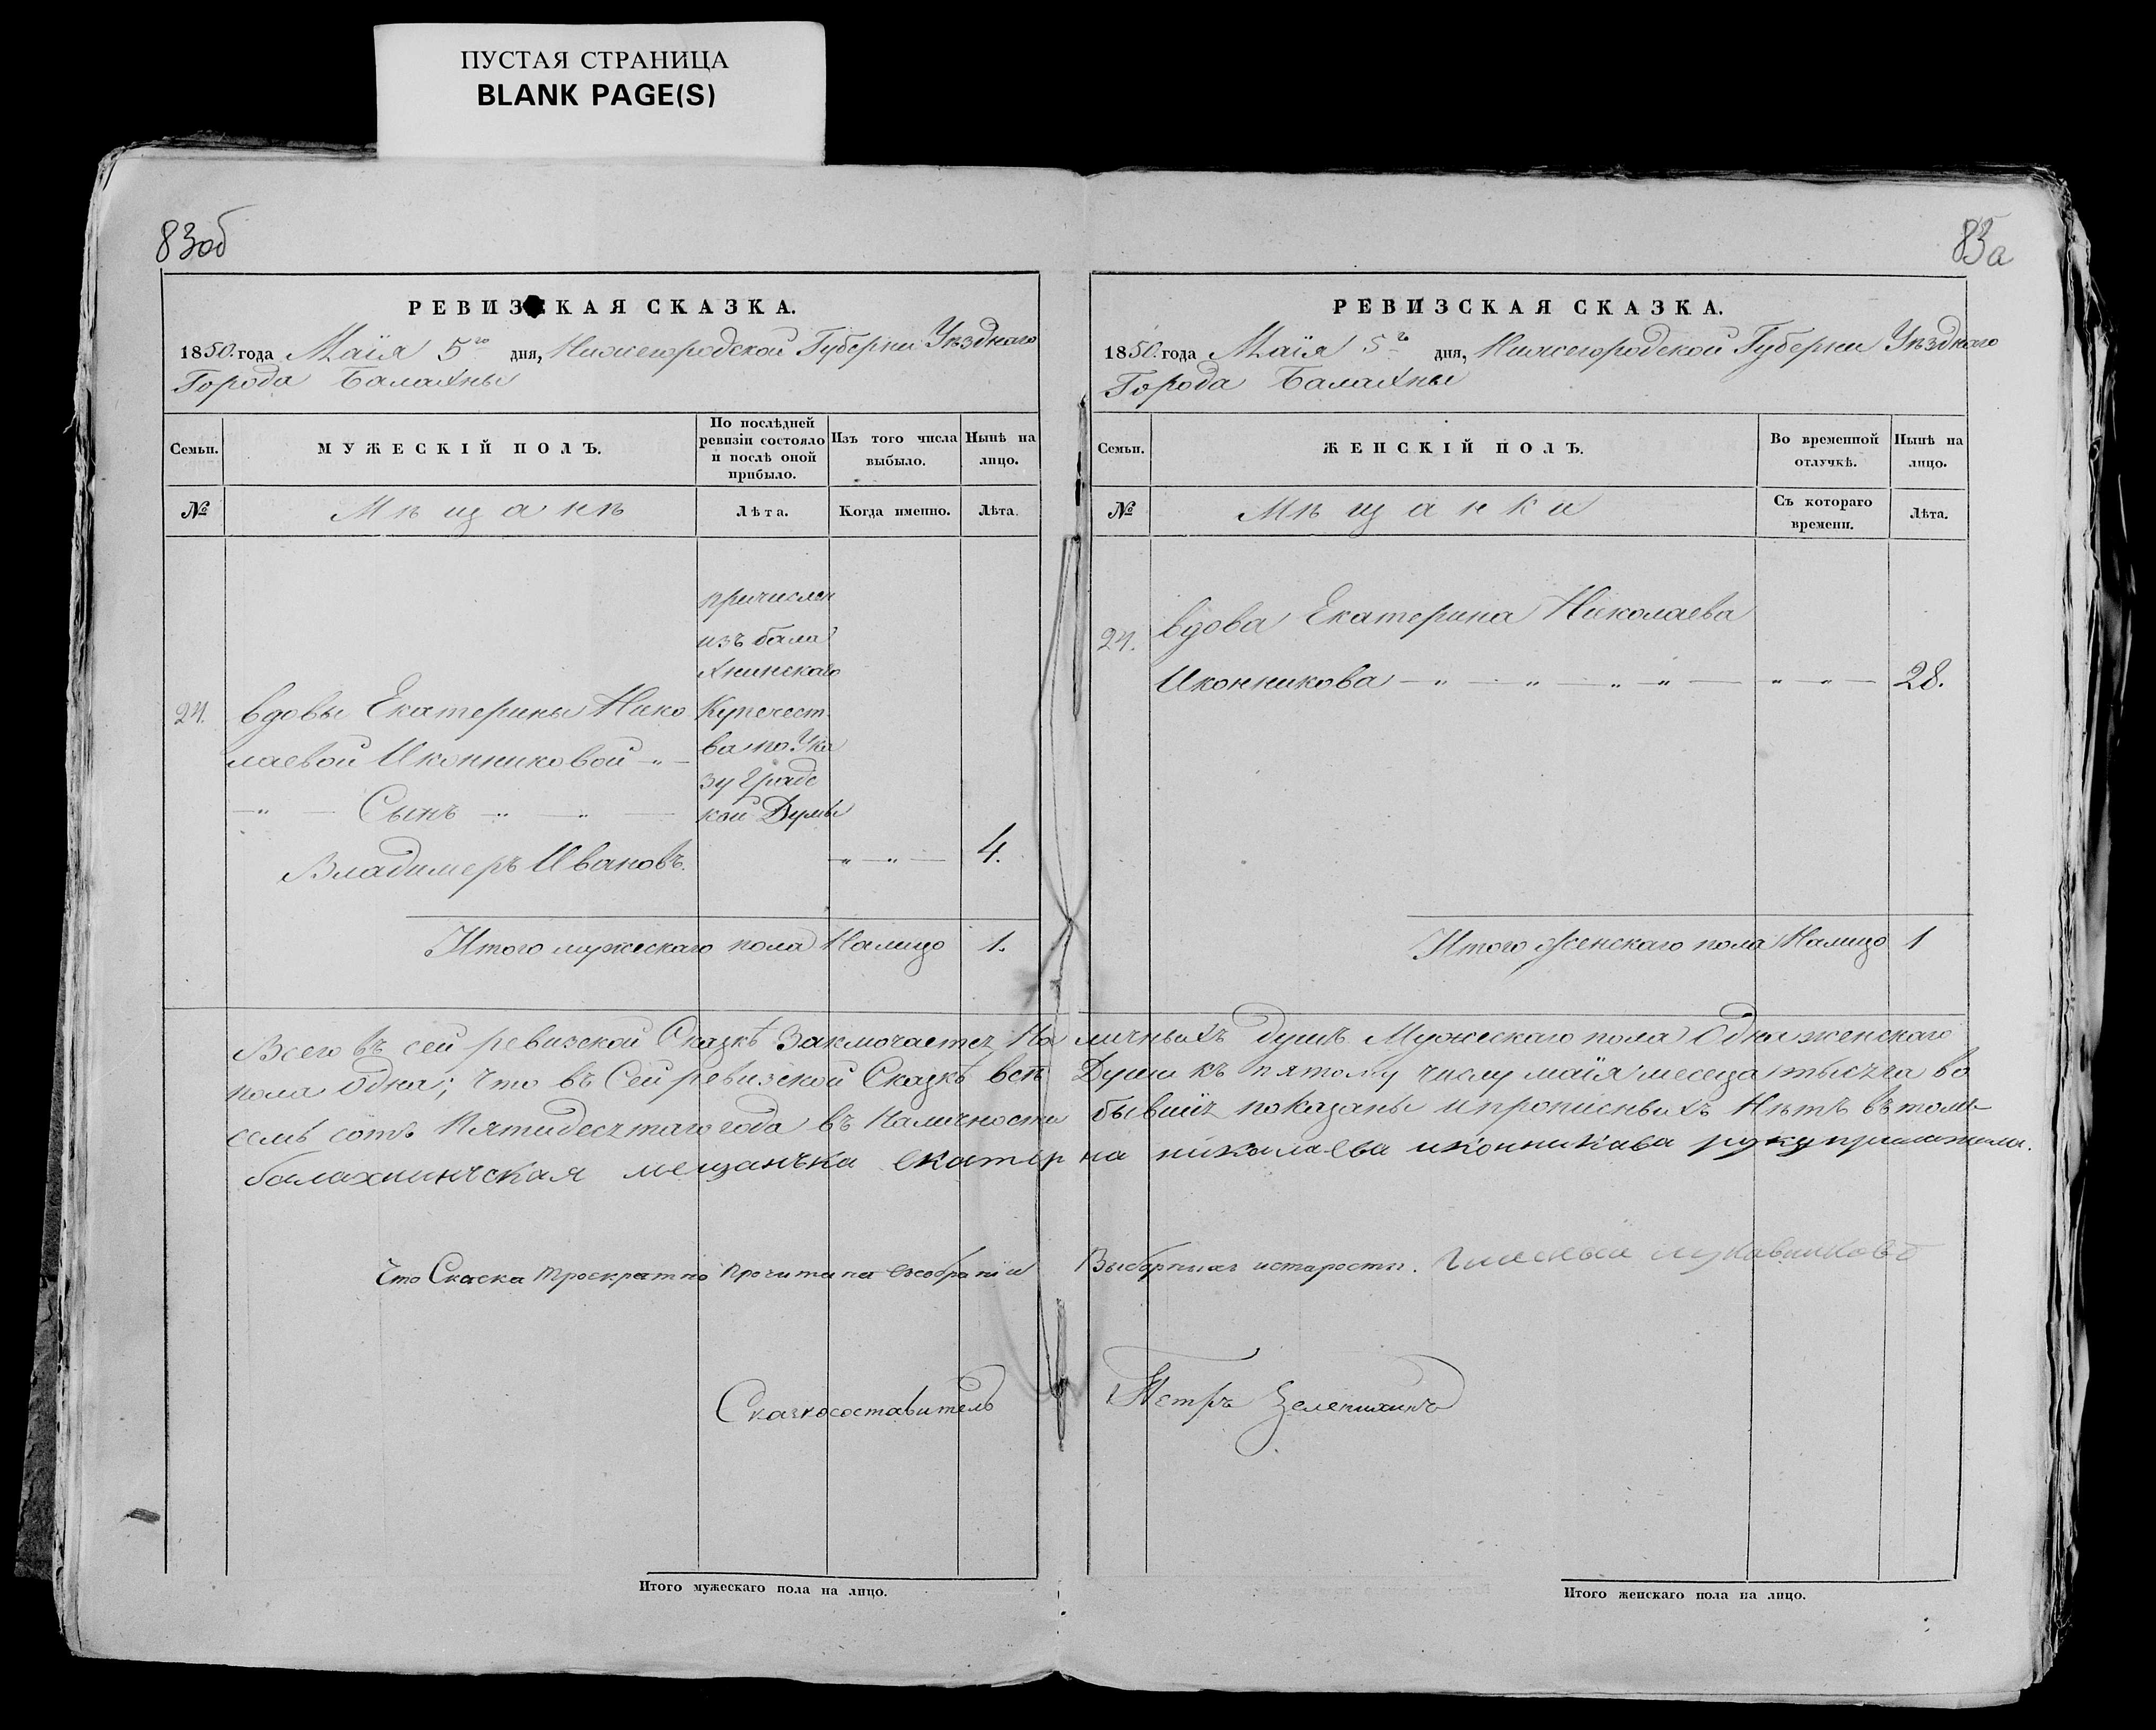 ПУСТАЯ СТРАНИЦА
BLANK PAGE(S)
83об
РЕВИЗСКАЯ СКАЗКА.
1850 года Маія 5го дня, Нижегородской Губерни Уѣзднаго
Города Балахны
Семьи.
МУЖЕСКІЙ ПОЛЪ.
По послѣдней
ревизіи состояло
и послѣ оной
прибыло.
Изъ того числа
выбыло.
Нынѣ на
лицо.
№
Мѣщанъ
Лѣта.
Когда именно.
Лѣта.
причислен
изъ бала
хнинскаго
24. вдовы Екатерины Нико
Купечест
лаевой Иконниковой
ва по Ука
зу Градс
Сынъ
кой Думы
Владимеръ Ивановъ. 4.
Итого мужескаго пола Налицо 1.
83а
РЕВИЗСКАЯ СКАЗКА.
1850 года Маія 5го дня, Нижегородской Губерни Уѣзднаго
Города Балахны
Семьи.
ЖЕНСКІЙ ПОЛЪ.
Во временной
отлучкѣ.
Нынѣ на
лицо.
№
Мѣщанки
Съ котораго
времени.
Лѣта.
24. вдова Екатерина Николаева
Иконникова 28.
Итого женскаго пола Налицо 1
Всего въ сей ревизской Сказкѣ Заключаетця На личныхъ душъ Мужескаго пола Одна женскаго
пола Одна; Что въ Сей ревизской Сказкѣ всѣ Души къ пятому числу маія месеца тысяча во
семь сотъ Пятидесятаго года въ Наличности бывшія показаны и прописныхъ Нѣтъ въ томъ
балахнинская мещанка екатерина николаева иконникава руку приложила.
Что Скаска Троекратно Прочитана Всобраніи Выборныя истаросты.
Сказкосоставитель Петръ Зелепихинъ
Итого мужескаго пола на лицо.
Итого женскаго пола на лицо.